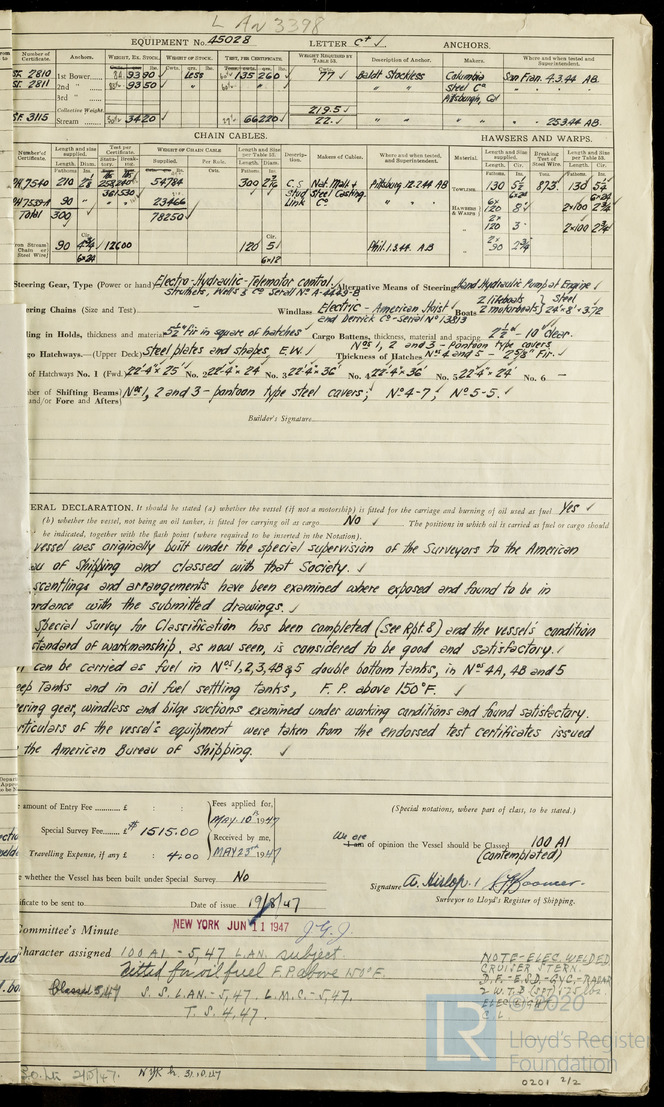 L AN 3398
EQUIPMENT No. 45028 LETTER C† ✓ ANCHORS.
Number of Certificate. Anchors. WEIGHT, EX. STOCK. WEIGHT OF STOCK. TEST, PER CERTIFICATE. WEIGHT REQUIRED BY TABLE 53. Description of Anchor. Makers. Where and when tested and Superintendent.
SF. 2810 1st Bower 9390 Less 135260 77 ✓ Baldt Stockless Columbia San Fran. 4.3.44 AB.
SF. 2811 2nd " 9350 " " " Steel Co " "
3rd " Pittsburg, Cal
Collective Weight 219.5 ✓
SF. 3115 Stream 3420 66220 22. ✓ " " " " 25.3.44 AB.
CHAIN CABLES. HAWSERS AND WARPS.
Number of Certificate. Length and size supplied. Test per Certificate. WEIGHT OF CHAIN CABLE Length and size per Table 53. Description. Makers of Cables. Where and when tested, and Superintendent. Material. Length and Size supplied. Breaking Test of Steel Wire. Length and Size per Table 53.
Fathoms. Length. Diam. Statutory. Breaking. Supplied. Per Rule.
PH 7540 210 54784 300 C.S. Nat. Mall. & Pittsburg 12.2.44 AB TOWLINES 130 5½ 87.3 130
90 23466 Stud Steel Casting. HAWSERS & WARPS 120 8" 2x100 2¾
Total 300 78250 Link Co 120 3 2x100 2¾
Iron Stream Chain or Steel Wire 90 4¾ 12600 120 5 Phil. 1.3.44 A.B 90 2¾
6x24 6x12
Steering Gear, Type (Power or hand) Electro-Hydraulic-Telemotor control. Alternative Means of Steering Hand Hydraulic Pump at Engine
Struthers, Wells & Co Serial No A-4449-B
Steering Chains (Size and Test) Windlass Electric - American Hoist and Derrick Co - Serial No 13813 Boats 2 lifeboats 2 motorboats } Steel 24'x8'x3.72
Ceiling in Holds, thickness and material 2½" Fir in square of hatches Cargo Battens, thickness, material and spacing 2"x5½" - 10" clear.
Cargo Hatchways.—(Upper Deck) Steel plates and shapes, E.W. Thickness of Hatches Nos 1, 2 and 3 - Pontoon type covers Nos 4 and 5 - 2⅝" Fir.
of Hatchways No. 1 (Fwd.) 22'-4"x 25' No. 2 22'-4"x 24' No. 3 22'-4"x 36' No. 4 22'-4"x 36' No. 5 22'-4"x 24' No. 6 —
Number of Shifting Beams and/or Fore and Afters Nos 1, 2 and 3 - pontoon type steel covers; No 4-7; No 5-5.
Builder's Signature
GENERAL DECLARATION. It should be stated (a) whether the vessel (if not a motorship) is fitted for the carriage and burning of oil used as fuel Yes ✓
(b) whether the vessel, not being an oil tanker, is fitted for carrying oil as cargo No ✓ The positions in which oil is carried as fuel or cargo should
be indicated, together with the flash point (where required to be inserted in the Notation).
vessel was originally built under the special supervision of the Surveyors to the American
au of Shipping and classed with that Society. ✓
scantlings and arrangements have been examined where exposed and found to be in
ordance with the submitted drawings. ✓
Special Survey for Classification has been completed (See Rpt 8) and the vessel's condition
standard of workmanship, as now seen, is considered to be good and satisfactory. ✓
can be carried as fuel in Nos 1, 2, 3, 4B & 5 double bottom tanks, in Nos 4A, 4B and 5
eep Tanks and in oil fuel settling tanks, F.P. above 150°F. ✓
ering gear, windlass and bilge suctions examined under working conditions and found satisfactory.
rticulars of the vessel's equipment were taken from the endorsed test certificates issued
the American Bureau of Shipping. ✓
amount of Entry Fee £ : : Fees applied for, MAY 10th 1947
Special Survey Fee £ $ 1515.00 Received by me, MAY 23rd 1947
Travelling Expense, if any £ : 4.00
(Special notations, where part of class, to be stated.)
We are
I am of opinion the Vessel should be Classed 100 A1
(contemplated)
whether the Vessel has been built under Special Survey No
Signature A. Hislop.
Surveyor to Lloyd's Register of Shipping.
ificate to be sent to Date of issue 19/8/47
Committee's Minute NEW YORK JUN 11 1947
Character assigned 100A1 - 5,47 L.A.N. subject.
fitted for oil fuel F.P. above 150°F.
Classed 5,47 S.S. L.A.N.-5,47. L.M.C.-5,47.
T.S. 4,47.
NOTE-ELEC. WELDED
CRUISER STERN.
D.F.-E.S.D.-GYC.-RADAR
C.L.
© 2020
LR
Lloyd's Register
Foundation
NYK
0201 2/2